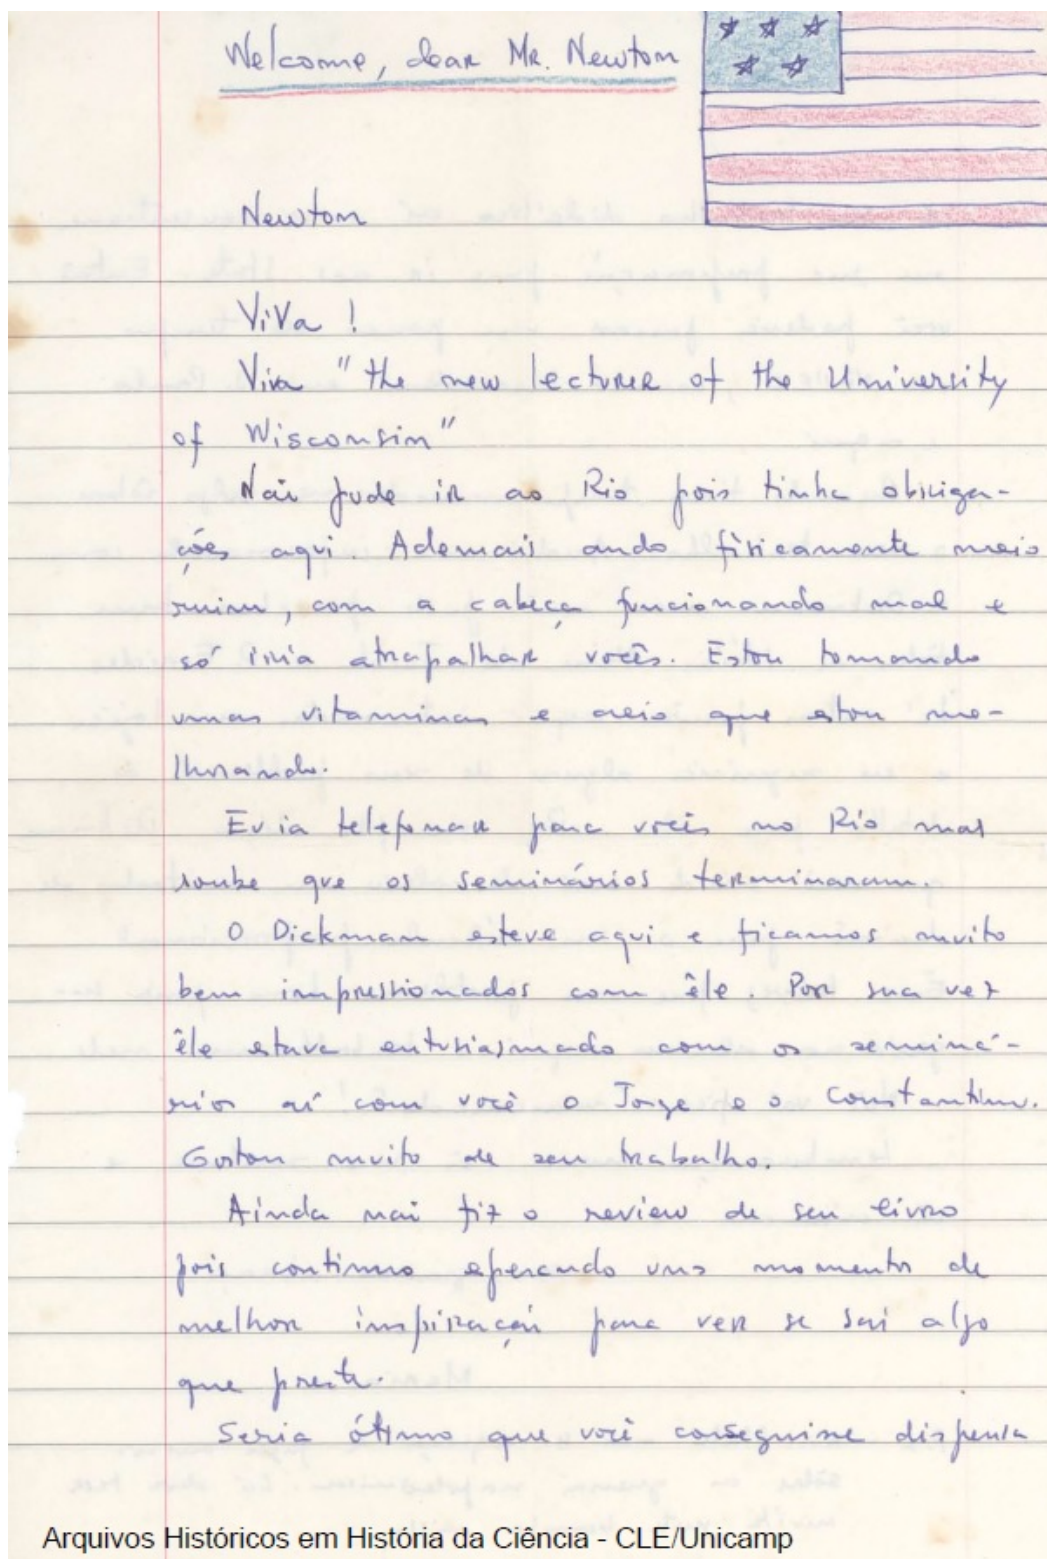 Welcome, dear Mr. Newton
Newton
Viva !
Viva "the new lecturer of the University
of Wisconsin"
Não pude ir ao Rio pois tinha obriga-
ções aqui. Ademais ando fisicamente meio
ruim, com a cabeça funcionando mal e
só iria atrapalhar vocês. Estou tomando
umas vitaminas e creio que estou me-
lhorando.
Eu ia telefonar para vocês no Rio mas
soube que os seminários terminaram.
O Dickman esteve aqui e ficamos muito
bem impressionados com êle. Por sua vez
êle estava entusiasmado com os seminá-
rios aí com você o Jorge e o Constantino.
Gostou muito de seu trabalho.
Ainda não fiz o review de seu livro
pois continuo esperando uns momentos de
melhor inspiração para ver se sai algo
que preste.
Seria ótimo que você conseguisse dispensa
Arquivos Históricos em História da Ciência - CLE/Unicamp